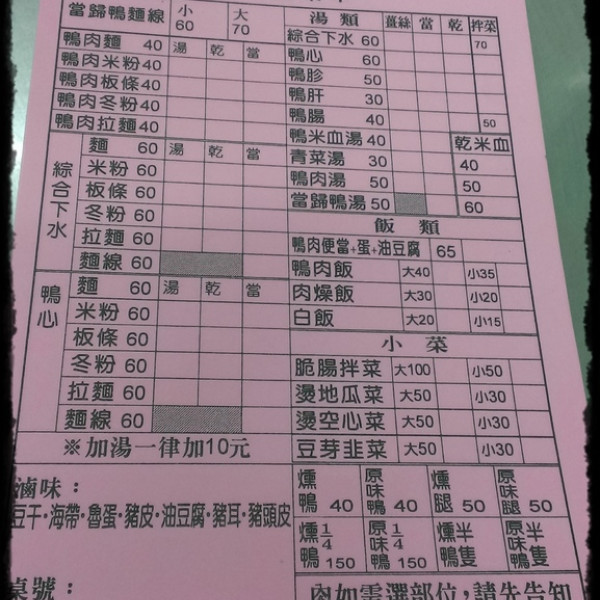 當歸鴨麵線 小60 大70
鴨肉麵 40 湯 乾 當
鴨肉米粉 40
鴨肉板條 40
鴨肉冬粉 40
鴨肉拉麵 40
綜合下水
麵 60 湯 乾 當
米粉 60
板條 60
冬粉 60
拉麵 60
麵線 60
鴨心
麵 60 湯 乾 當
米粉 60
板條 60
冬粉 60
拉麵 60
麵線 60
※加湯一律加10元
滷味：
豆干·海帶·魯蛋·豬皮·油豆腐·豬耳·豬頭皮
桌號：
湯類 薑絲 當 乾 拌菜
綜合下水 60 70
鴨心 60
鴨胗 50
鴨肝 30
鴨腸 40 50
鴨米血湯 40 乾米血
青菜湯 30 40
鴨肉湯 50 50
當歸鴨湯 50 60
飯類
鴨肉便當+蛋+油豆腐 65
鴨肉飯 大40 小35
肉燥飯 大30 小20
白飯 大20 小15
小菜
脆腸拌菜 大100 小50
燙地瓜菜 大50 小30
燙空心菜 大50 小30
豆芽韭菜 大50 小30
燻鴨 40 原味鴨 40 燻腿 50 原味腿 50
燻1/4鴨 150 原味1/4鴨 150 燻半鴨隻 原味半鴨隻
肉如需選部位,請先告知